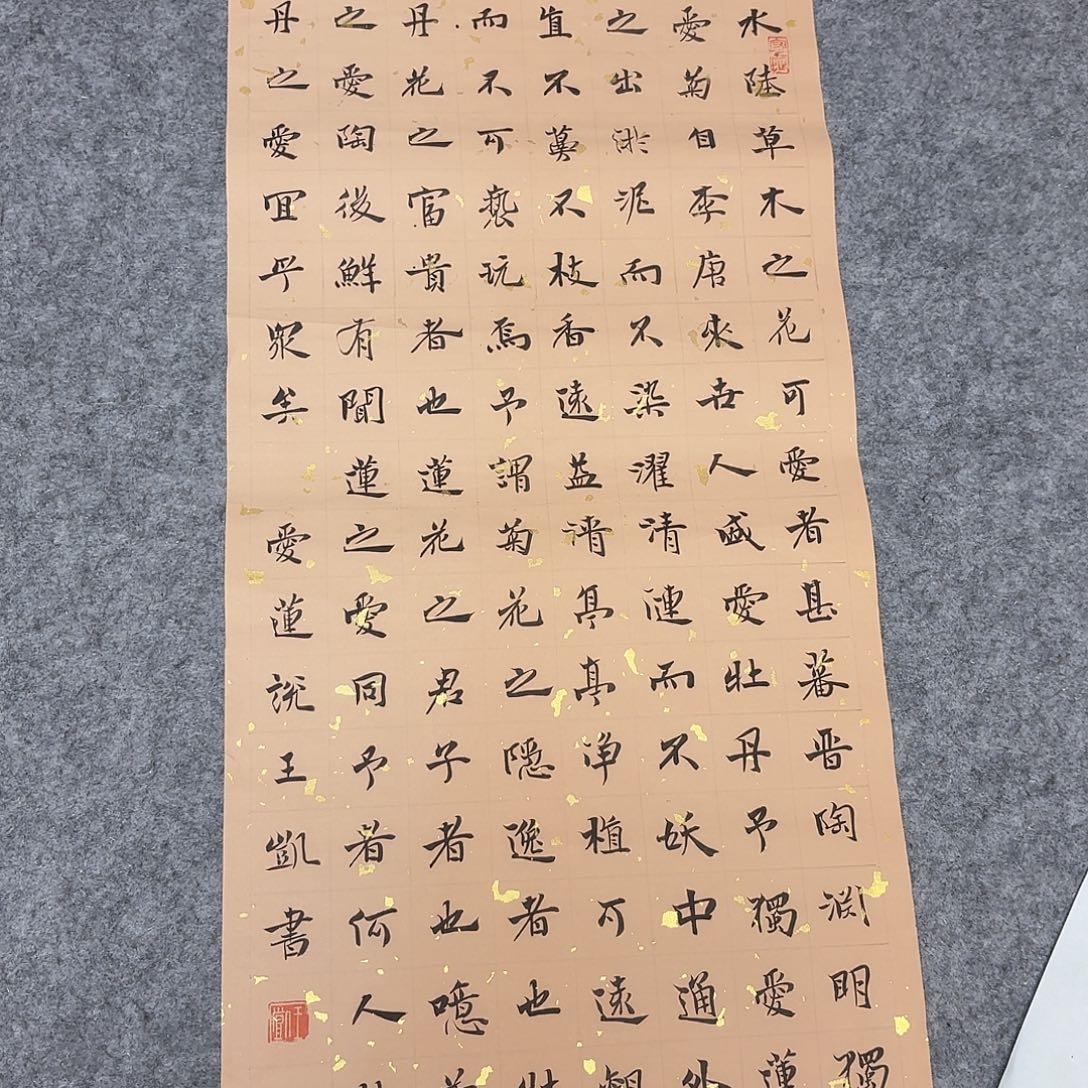 水陸草木之花可愛者甚蕃晋陶渊明獨
愛菊自李唐來世人盛愛牡丹予獨愛蓮
之出淤泥而不染濯清漣而不妖中通外
直不蔓不枝香遠益清亭亭净植可遠觀
而不可褻玩焉予謂菊花之隱逸者也牡
丹花之富貴者也蓮花之君子者也噫菊
之愛陶後鮮有聞蓮之愛同予者何人牡
丹之愛宜乎眾矣 愛蓮説王凱書
王凱